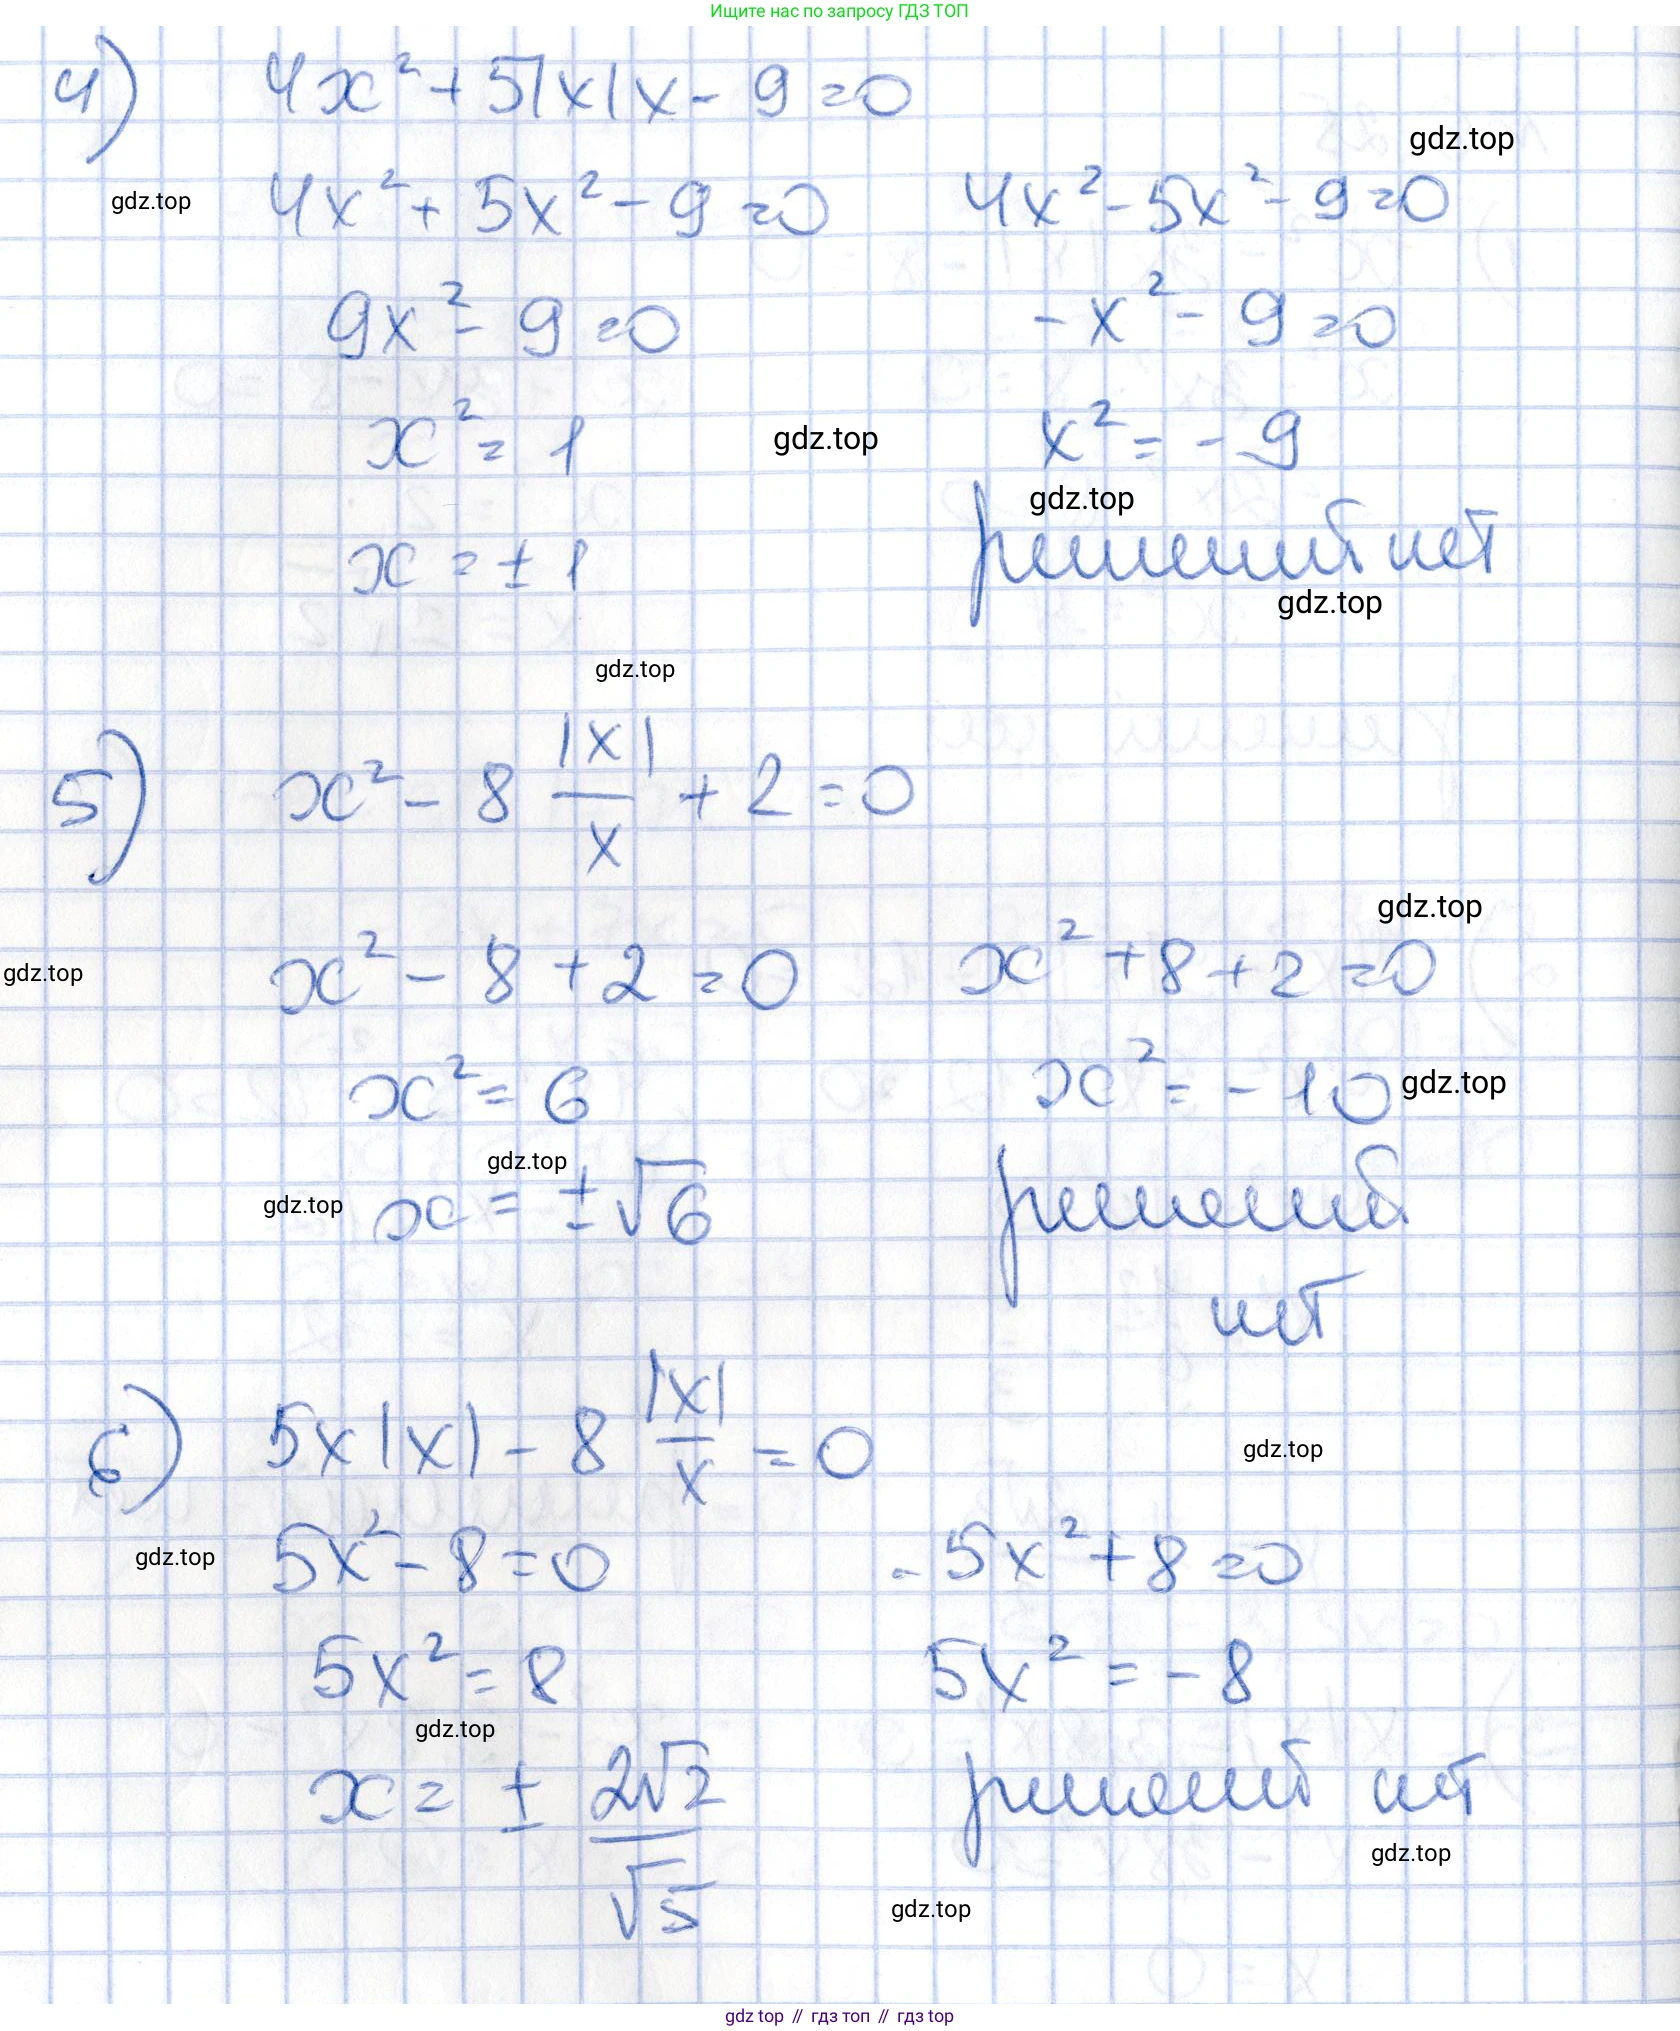 Ищите нас по запросу ГДЗ ТОП
4) 4x² + 5|x|x - 9 = 0
gdz.top
gdz.top 4x² + 5x² - 9 = 0 4x² - 5x² - 9 = 0
9x² - 9 = 0 -x² - 9 = 0
x² = 1 gdz.top x² = -9
gdz.top
x = ±1 решений нет
gdz.top
gdz.top
5) x² - 8 |x|/x + 2 = 0
gdz.top
gdz.top x² - 8 + 2 = 0 x² + 8 + 2 = 0
x² = 6 x² = -10 gdz.top
gdz.top
gdz.top x = ±√6 решений
нет
6) 5x|x| - 8 |x|/x = 0
gdz.top
gdz.top 5x² - 8 = 0 -5x² + 8 = 0
5x² = 8 5x² = -8
gdz.top
x = ± 2√2/√5 решений нет
gdz.top
gdz.top
gdz top // гдз топ // гдз top